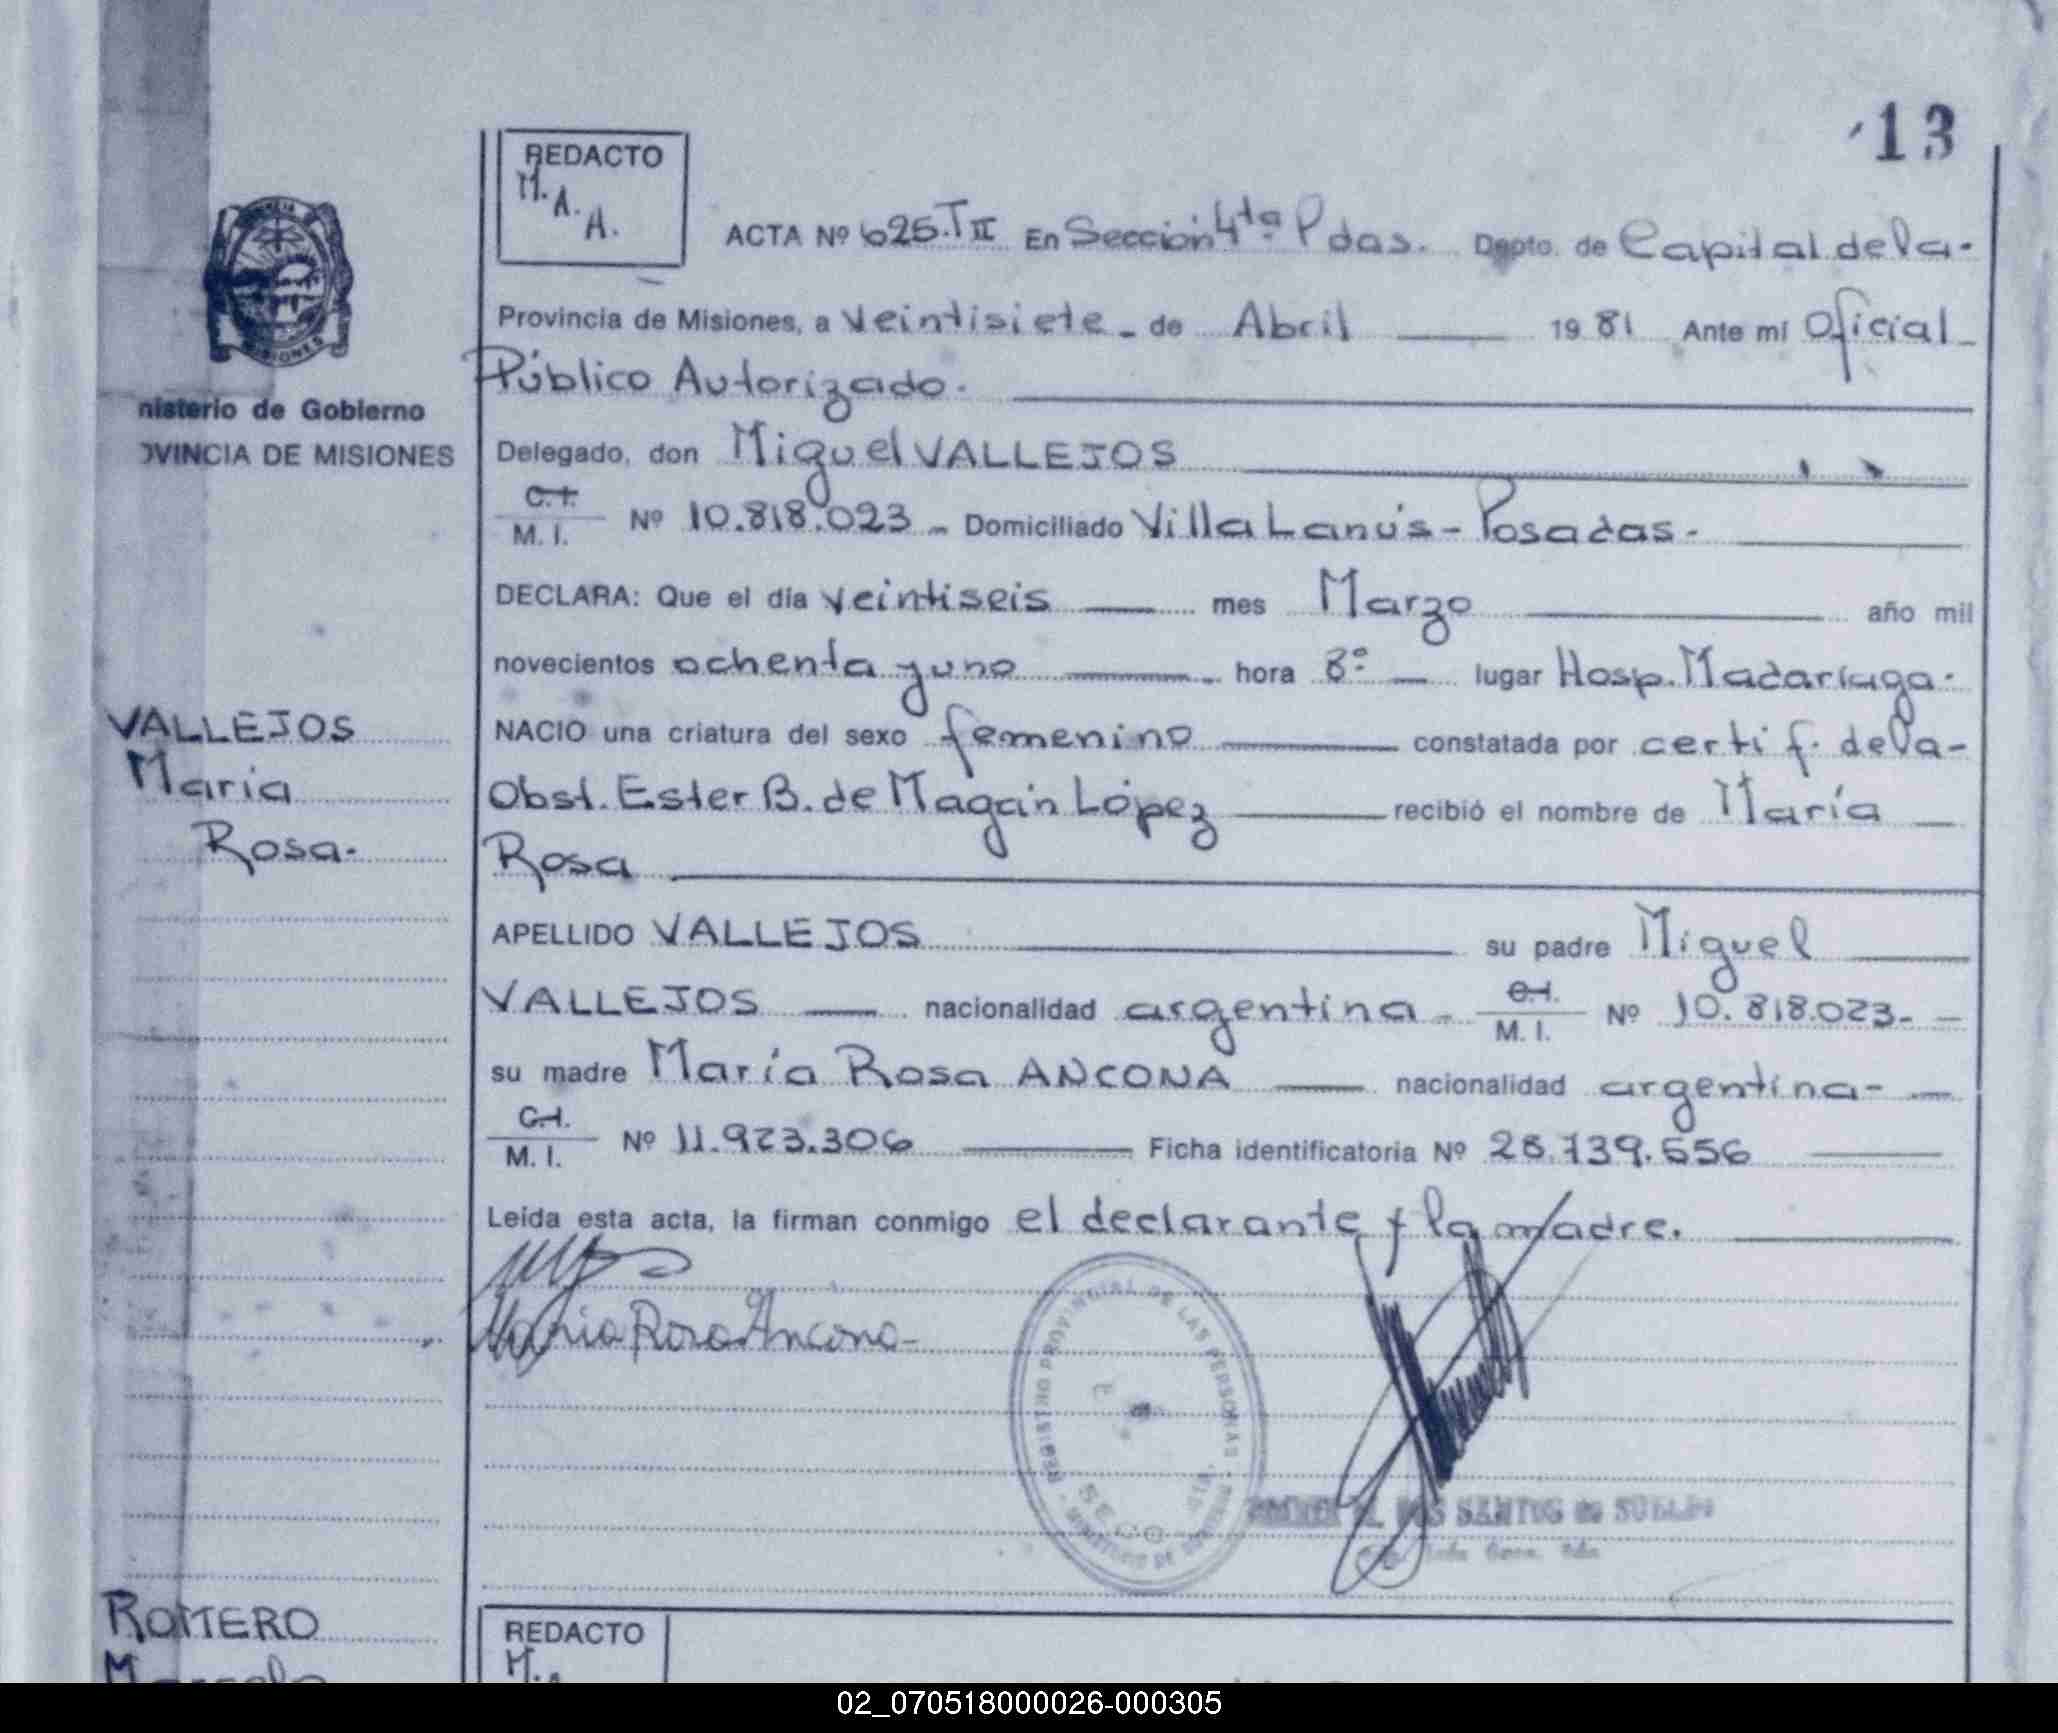 13
REDACTO
M.A.A.
ACTA Nº 625.TII En Sección 4ta Pdas. Depto. de Capital de la-
Provincia de Misiones, a veintisiete - de Abril 1981 Ante mí Oficial
Público Autorizado.
nisterio de Gobierno
OVINCIA DE MISIONES
Delegado, don Miguel VALLEJOS
C.I. M.I. Nº 10.818.023 - Domiciliado Villa Lanús - Posadas.-
DECLARA: Que el día veintiseis mes Marzo año mil
novecientos ochenta y uno hora 8º lugar Hosp. Madariaga.
VALLEJOS
María
Rosa.
NACIO una criatura del sexo femenino constatada por certif. de la-
Obst. Ester B. de Magán López recibió el nombre de María
Rosa
APELLIDO VALLEJOS su padre Miguel
VALLEJOS nacionalidad argentina - C.I. M.I. Nº 10.818.023-
su madre María Rosa ANCONA nacionalidad argentina-
C.I. M.I. Nº 11.923.306 Ficha identificatoria Nº 28.139.556
Leída esta acta, la firman conmigo el declarante y la madre.
Maria Rosa Ancona
REGISTRO PROVINCIAL DE LAS PERSONAS - MINISTERIO DE GOBIERNO
DOS SANTOS de
ROMERO
REDACTO
02_070518000026-000305